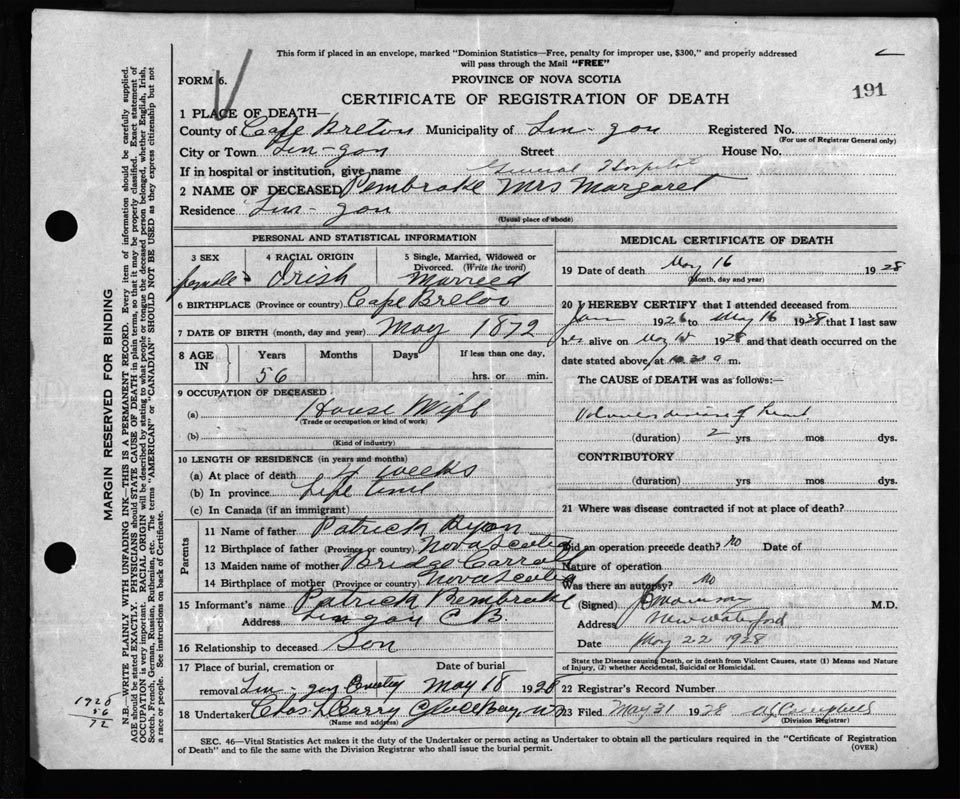 This form if placed in an envelope, marked "Dominion Statistics—Free, penalty for improper use, $300," and properly addressed
will pass through the Mail "FREE"
FORM 6.
PROVINCE OF NOVA SCOTIA
CERTIFICATE OF REGISTRATION OF DEATH
191
1 PLACE OF DEATH—
County of Cape Breton Municipality of Lin-gon Registered No.
(For use of Registrar General only)
City or Town Lin-gon Street House No.
If in hospital or institution, give name General Hospital
2 NAME OF DECEASED Pembroke Mrs Margaret
Residence Lin-gon
(Usual place of abode)
PERSONAL AND STATISTICAL INFORMATION
3 SEX 4 RACIAL ORIGIN 5 Single, Married, Widowed or Divorced. (Write the word)
female Irish Married
6 BIRTHPLACE (Province or country) Cape Breton
7 DATE OF BIRTH (month, day and year) May 1872
8 AGE IN Years Months Days If less than one day,
56 hrs. or min.
9 OCCUPATION OF DECEASED
(a) House Wife
(Trade or occupation or kind of work)
(b)
(Kind of industry)
10 LENGTH OF RESIDENCE (in years and months)
(a) At place of death 4 weeks
(b) In province Life time
(c) In Canada (if an immigrant)
Parents
11 Name of father Patrick Ryan
12 Birthplace of father (Province or country) Nova Scotia
13 Maiden name of mother Bridge Carroll
14 Birthplace of mother (Province or country) Nova Scotia
15 Informant's name Patrick Pembroke
Address Lingon C B.
16 Relationship to deceased Son
17 Place of burial, cremation or Date of burial
removal Lin-gon May 18 1928
18 Undertaker Chas L Curry Glace Bay, N S
(Name and address)
MEDICAL CERTIFICATE OF DEATH
19 Date of death May 16 1928
(Month, day and year)
20 I HEREBY CERTIFY that I attended deceased from
Jan 1926 to May 16 1928 that I last saw
her alive on May 1928 and that death occurred on the
date stated above, at m.
The CAUSE of DEATH was as follows:—
Valvular disease of heart
(duration) 2 yrs. mos. dys.
CONTRIBUTORY
(duration) yrs. mos. dys.
21 Where was disease contracted if not at place of death?
Did an operation precede death? No Date of
Nature of operation
Was there an autopsy? No
(Signed) M.D.
Address New Waterford
Date May 22 1928
State the Disease causing Death, or in death from Violent Causes, state (1) Means and Nature
of Injury, and (2) whether Accidental, Suicidal or Homicidal.
22 Registrar's Record Number
23 Filed May 31 1928 A J Campbell
(Division Registrar)
SEC. 46—Vital Statistics Act makes it the duty of the Undertaker or person acting as Undertaker to obtain all the particulars required in the "Certificate of Registration
of Death" and to file the same with the Division Registrar who shall issue the burial permit.
(OVER)
MARGIN RESERVED FOR BINDING
N.B.—WRITE PLAINLY WITH UNFADING INK—THIS IS A PERMANENT RECORD. Every item of information should be carefully supplied.
AGE should be stated EXACTLY. PHYSICIANS should STATE CAUSE OF DEATH in plain terms, so that it may be properly classified. Exact statement of
OCCUPATION is very important. RACIAL ORIGIN will be described by stating to what people or tongue the deceased person belonged, whether English, Irish,
Scotch, French, German, Russian, Ruthenian, etc. The terms "AMERICAN" or "CANADIAN" SHOULD NOT BE USED as they express citizenship but not
a race or people. See instructions on back of Certificate.
1928
56
72